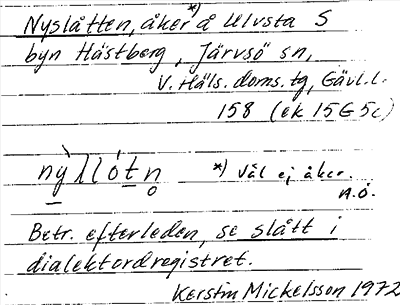 Nyslåtten, åker *) å Ulvsta S
byn Hästberg, Järvsö sn,
V. Häls. doms. tg, Gävl. l.
158 (ek 15G 5c)
*) Väl ej åker.
A.Ö.
Betr. efterleden, se slått i
dialektordregistret.
Kerstin Mickelsson 1972